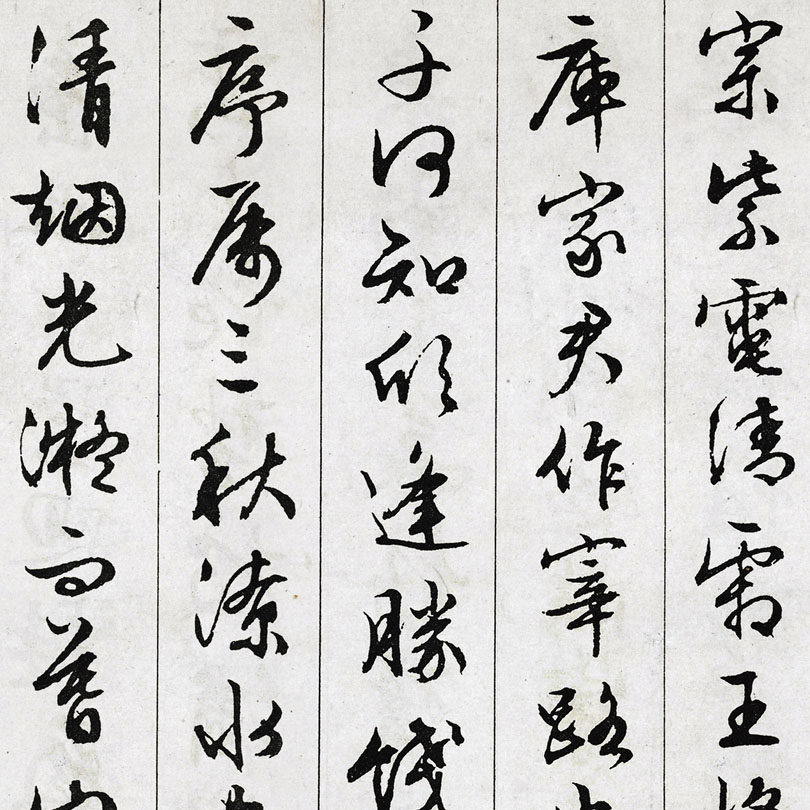 宗紫電清霜王
庫家君作宰路
子何知欣逢勝餞
序属三秋潦水
清烟光凝而暮